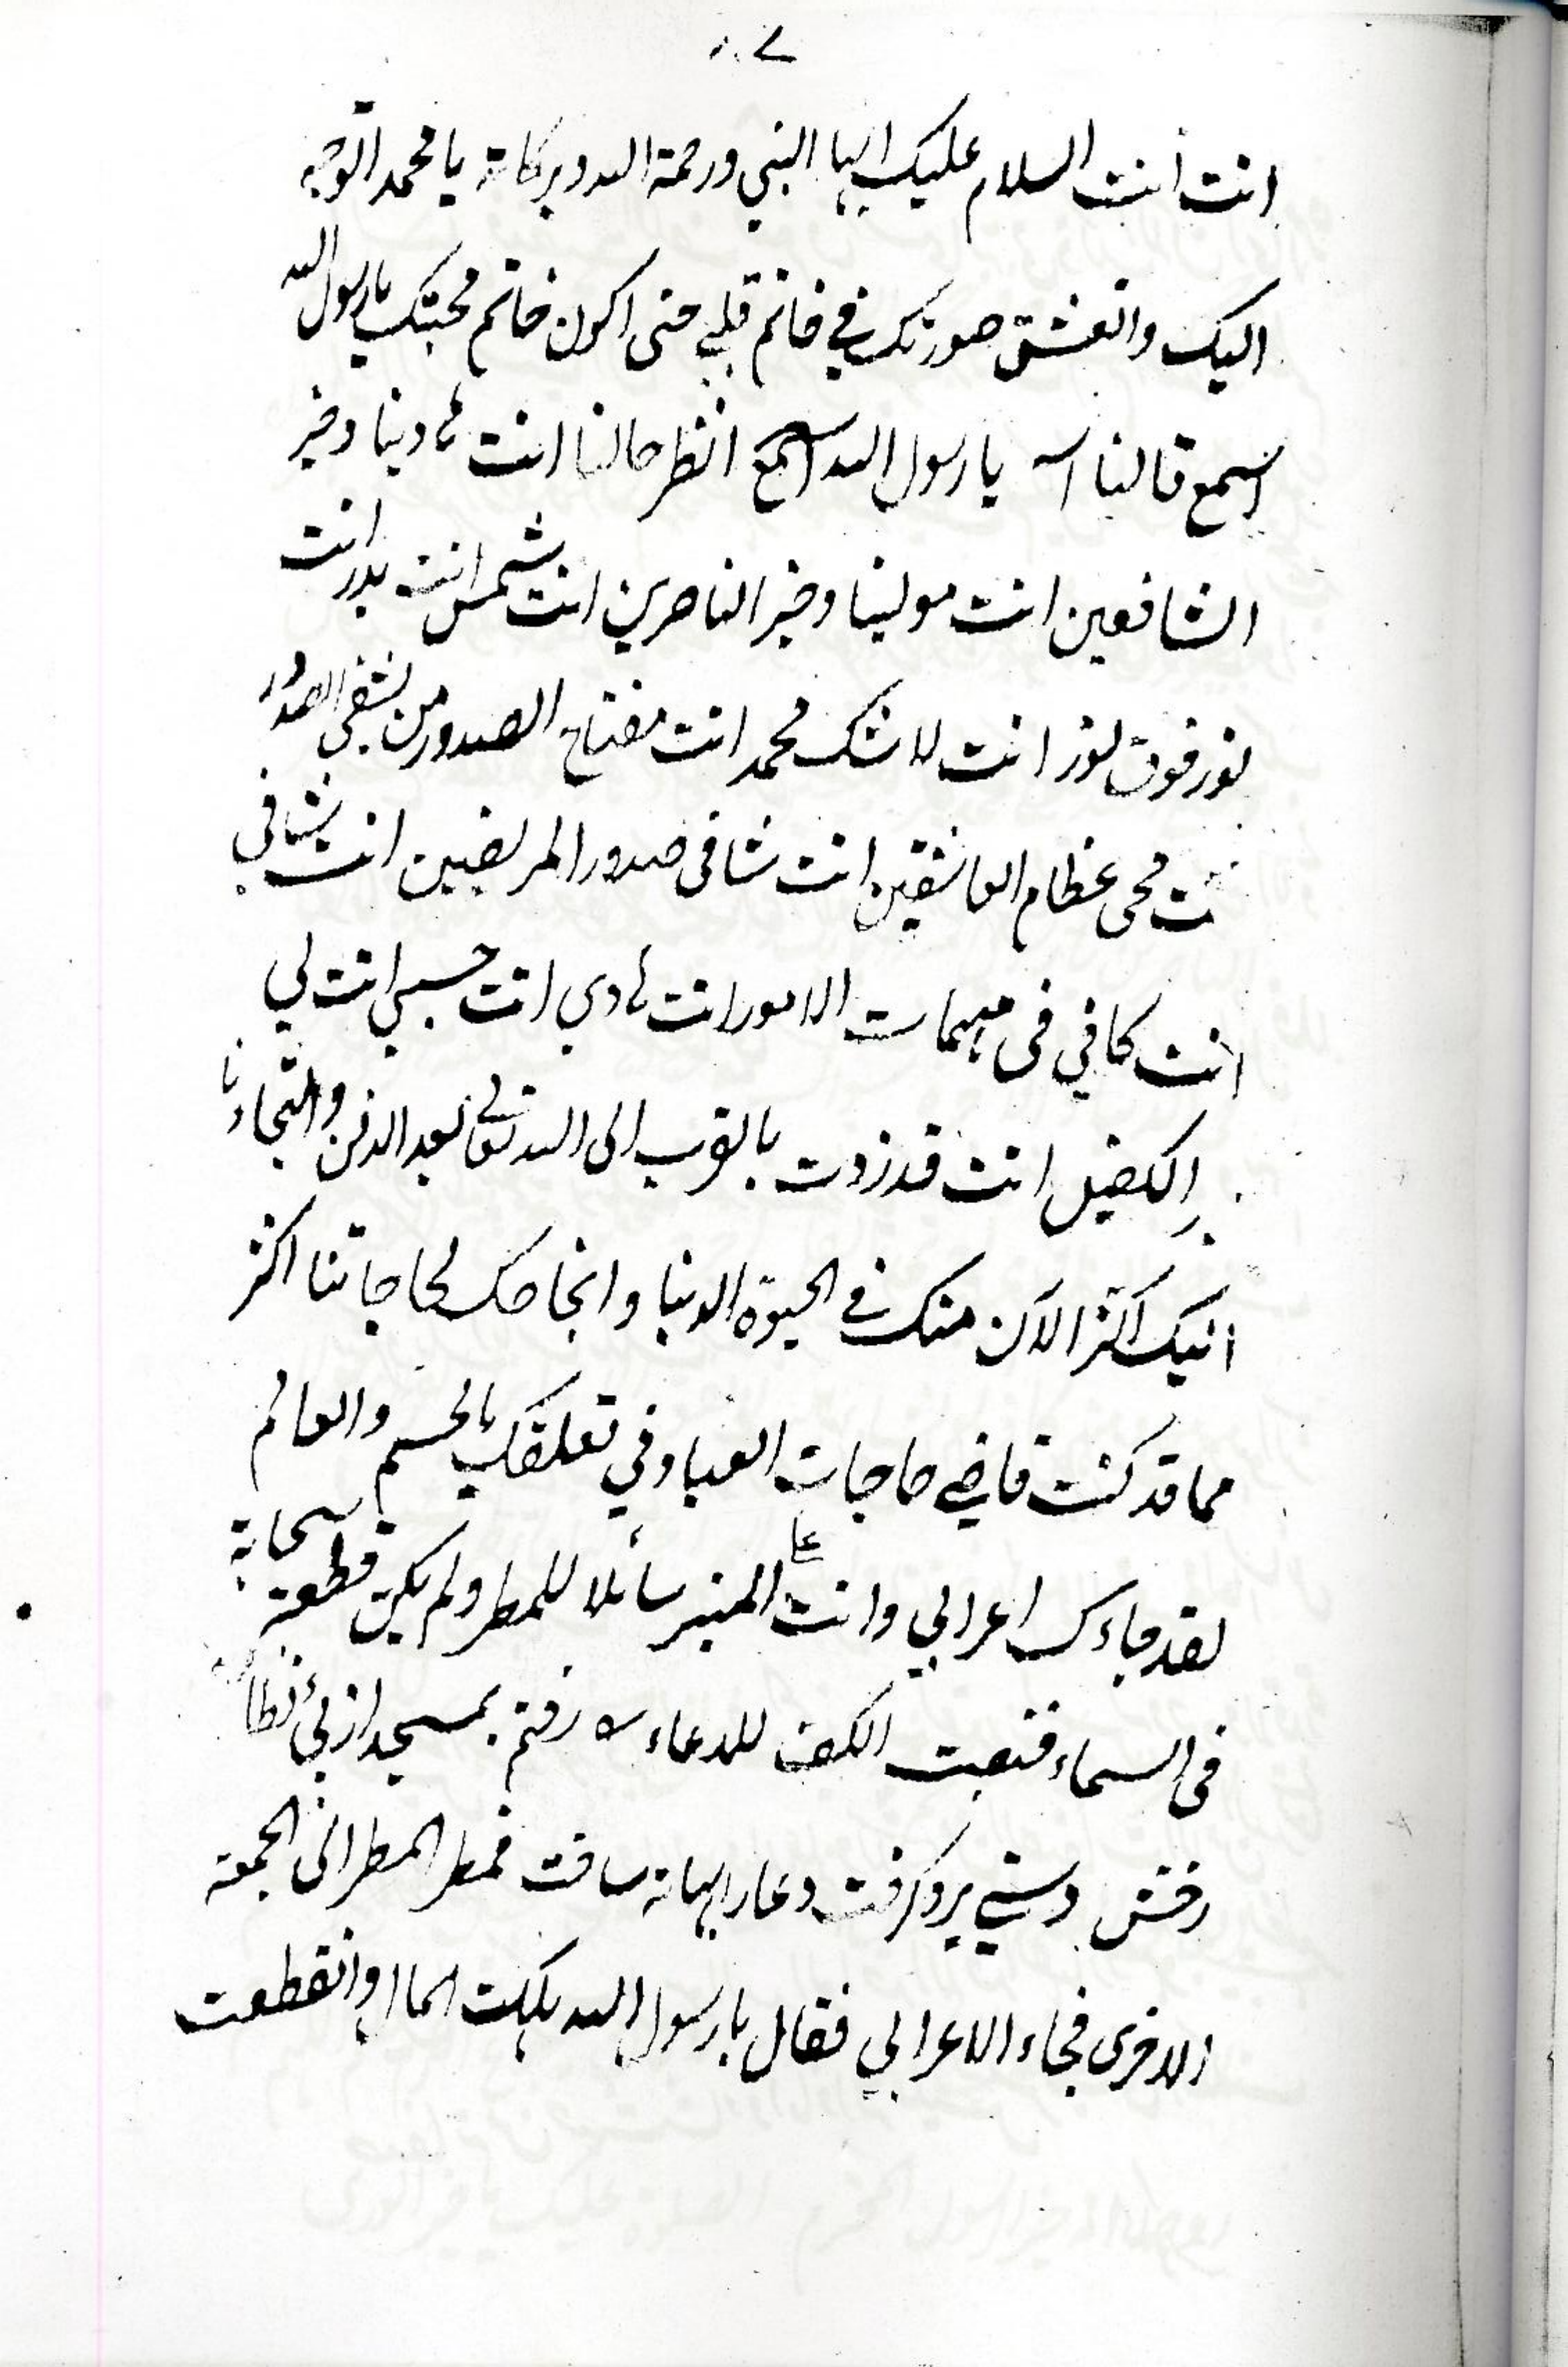 انت انت السلام عليك ايها النبي ورحمة الله وبركاته يا محمد اتوجه
اليك واتعشق صورتك في خاتم قلبي حتى اكون خاتم محبتك يا رسول الله
اسمع قالنا يا رسول الله اسمع انظر حالنا انت هادينا وخير
الشافعين انت مولينا وخير الناصرين انت شمس انت بدر انت
نور فوق نور انت لا شك محمد انت مفتاح الصدور من يشفى الصدور
نت محى عظام العاشقين انت شافى صدور المريضين انت شافي
انت كافي فى مهمات الامور انت هادي انت حسبي انت لي
الكفيل انت قد زدت بالقرب الى الله تعالى بعد الدفن والتجاءنا
اليك اكثر الآن منك في الحيوة الدنيا وانجاحك لحاجاتنا اكثر
مما قد كنت قاضي حاجات العباد في تعلقك بالجسم والعالم
لقد جاءك اعرابي وانت على المنبر سائلا للمطر ولم يكن قطعة سحابة
فى السماء فنصبت الكف للدعاء رفتم بمسجد از پئ نظاره
رخش دستے برو گرفت دعا را بهانه ساخت فمطر المطر الى الجمعة
الاخرى فجاء الاعرابي فقال يا رسول الله هلكت الماال وانقطعت